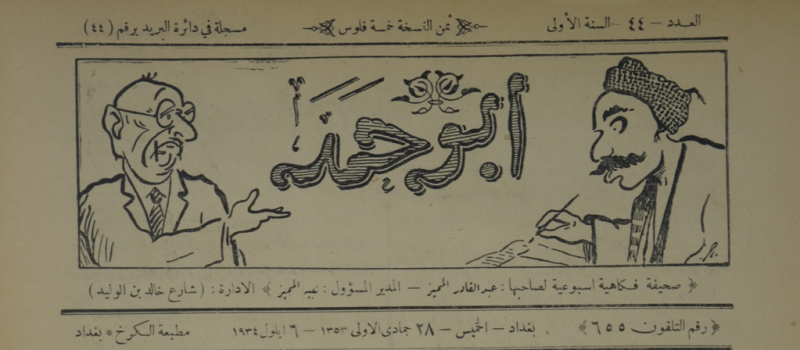 العدد - ٤٤ - السنة الأولى ثمن النسخة خمسة فلوس مسجلة في دائرة البريد برقم (٤٤)
أبو حمد
صحيفة فكاهية اسبوعية لصاحبها : عبدالقادر المميز - المدير المسؤول : نبيه المميز الادارة : (شارع خالد بن الوليد)
رقم التلفون ٦٥٥ بغداد - الخميس - ٢٨ جمادى الاولى ١٣٥٣ - ٦ ايلول ١٩٣٤ مطبعة الكرخ ٥ بغداد